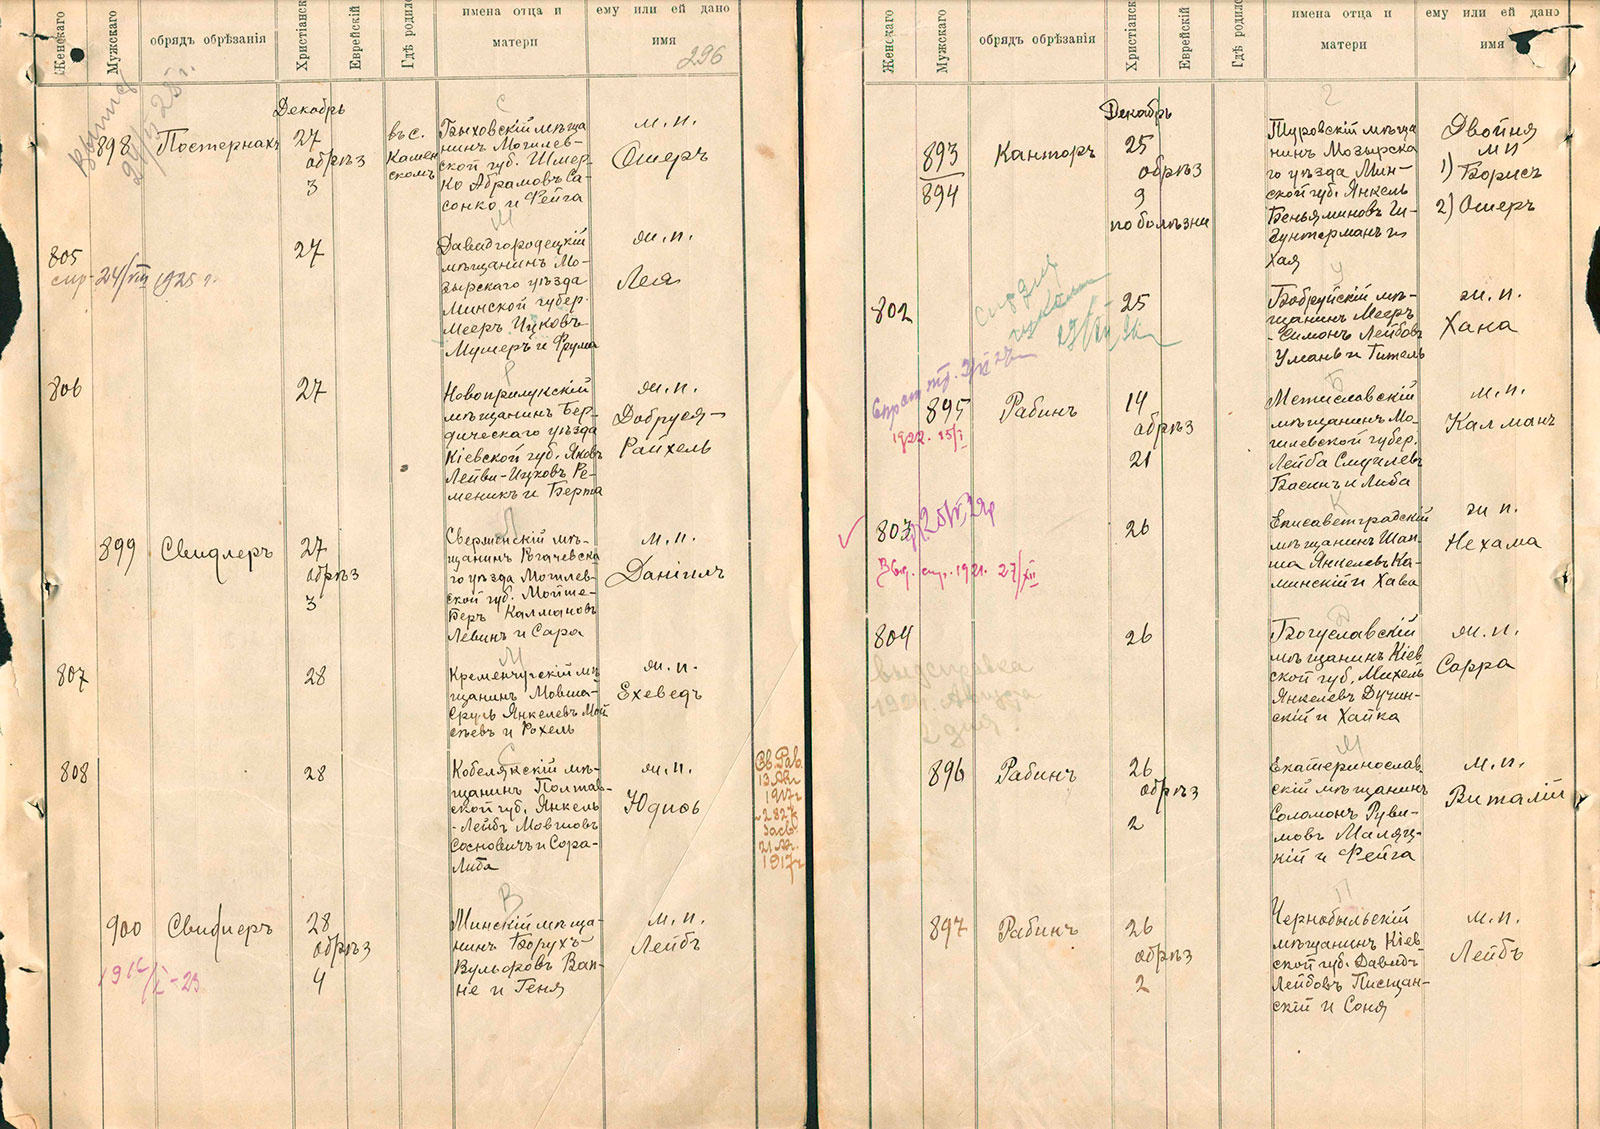 Женскаго
Мужскаго
обрядъ обрѣзанія
Христіанск
Еврейскій
Гдѣ родилс
имена отца и
матери
ему или ей дано
имя
296
Декабрь
898
Постернакъ
27
обрѣз
3
въ с.
Камен
скомъ
Быховскій мѣща
нинъ Могилев-
ской губ. Шмер-
ко Абрамовъ Са-
сонко и Фейга
м. п.
Ошеръ
805
спр- 24/VIII 1925 г.
27
Давидгородецкій
мѣщанинъ Мо-
зырскаго уѣзда
Минской губер.
Мееръ Ицковъ
Мушеръ и Фрума
ж. п.
Лея
806
27
Новоприлукскій
мѣщанинъ Бер-
дическаго уѣзда
Кіевской губ. Яковъ
Лейви-Ицковъ Ре-
меникъ и Берта
ж. п.
Добруся-
Райхель
899
Свидлеръ
27
обрѣз
3
Сверженскій мѣ-
щанинъ Рогачевска
го уѣзда Могилев-
ской губ. Мойше-
Беръ Калмановъ
Левинъ и Сара
м. п.
Даніилъ
807
28
Кременчугскій мѣ
щанинъ Мовша-
Сруль Янкелевъ Мой
сѣевъ и Рохель
ж. п.
Ехеведъ
808
28
Кобелякскій мѣ-
щанинъ Полтав-
ской губ. Янкель
-Лейбъ Мовшовъ
Сосновичъ и Сора-
Либа
ж. п.
Юдиѳь
Св. Рав.
13 Авг.
1917г
2827
засв.
21 Авг.
1917г
900
Свидлеръ
28
обрѣз
4
Минскій мѣща-
нинъ Борухъ-
Вульфовъ Вап-
не и Геня
м. п.
Лейбъ
Женскаго
Мужскаго
обрядъ обрѣзанія
Христіанск
Еврейскій
Гдѣ родилс
имена отца и
матери
ему или ей дано
имя
Декабрь
893
894
Канторъ
25
обрѣз
9
по болѣзни
Туровскій мѣща
нинъ Мозырска
го уѣзда Мин-
ской губ. Янкель
Беньяминовъ Ги-
Хая
Двойня
м п
1) Борисъ
2) Ошеръ
802
25
Бобруйскій мѣ-
щанинъ Мееръ
-Симонъ Лейбовъ
Уманъ и Гитель
ж. п.
Хана
895
1922. 15/I
Рабинъ
14
обрѣз
21
Мстиславскій
мѣщанинъ Мо-
гилевской губер.
Лейба Смуилевъ
Басинъ и Либа
м. п.
Калманъ
803
26
Елисаветградскій
мѣщанинъ Шап-
ша Янкелевъ Ка-
минскій и Хава
ж п.
Нехама
Выд. спр. 1921. 27/XII
804
26
Богуславскій
мѣщанинъ Кіев
ской губ. Михель
Янкелевъ Дучин-
скій и Хайка
ж. п.
Сарра
896
Рабинъ
26
обрѣз
2
Екатеринослав-
скій мѣщанинъ
Соломонъ Руви-
мовъ Маляц-
кій и Фейга
м. п.
Виталій
897
Рабинъ
26
обрѣз
2
Чернобыльскій
мѣщанинъ Кіев-
ской губ. Давидъ
Лейбовъ Писщан-
скій и Соня
м. п.
Лейбъ